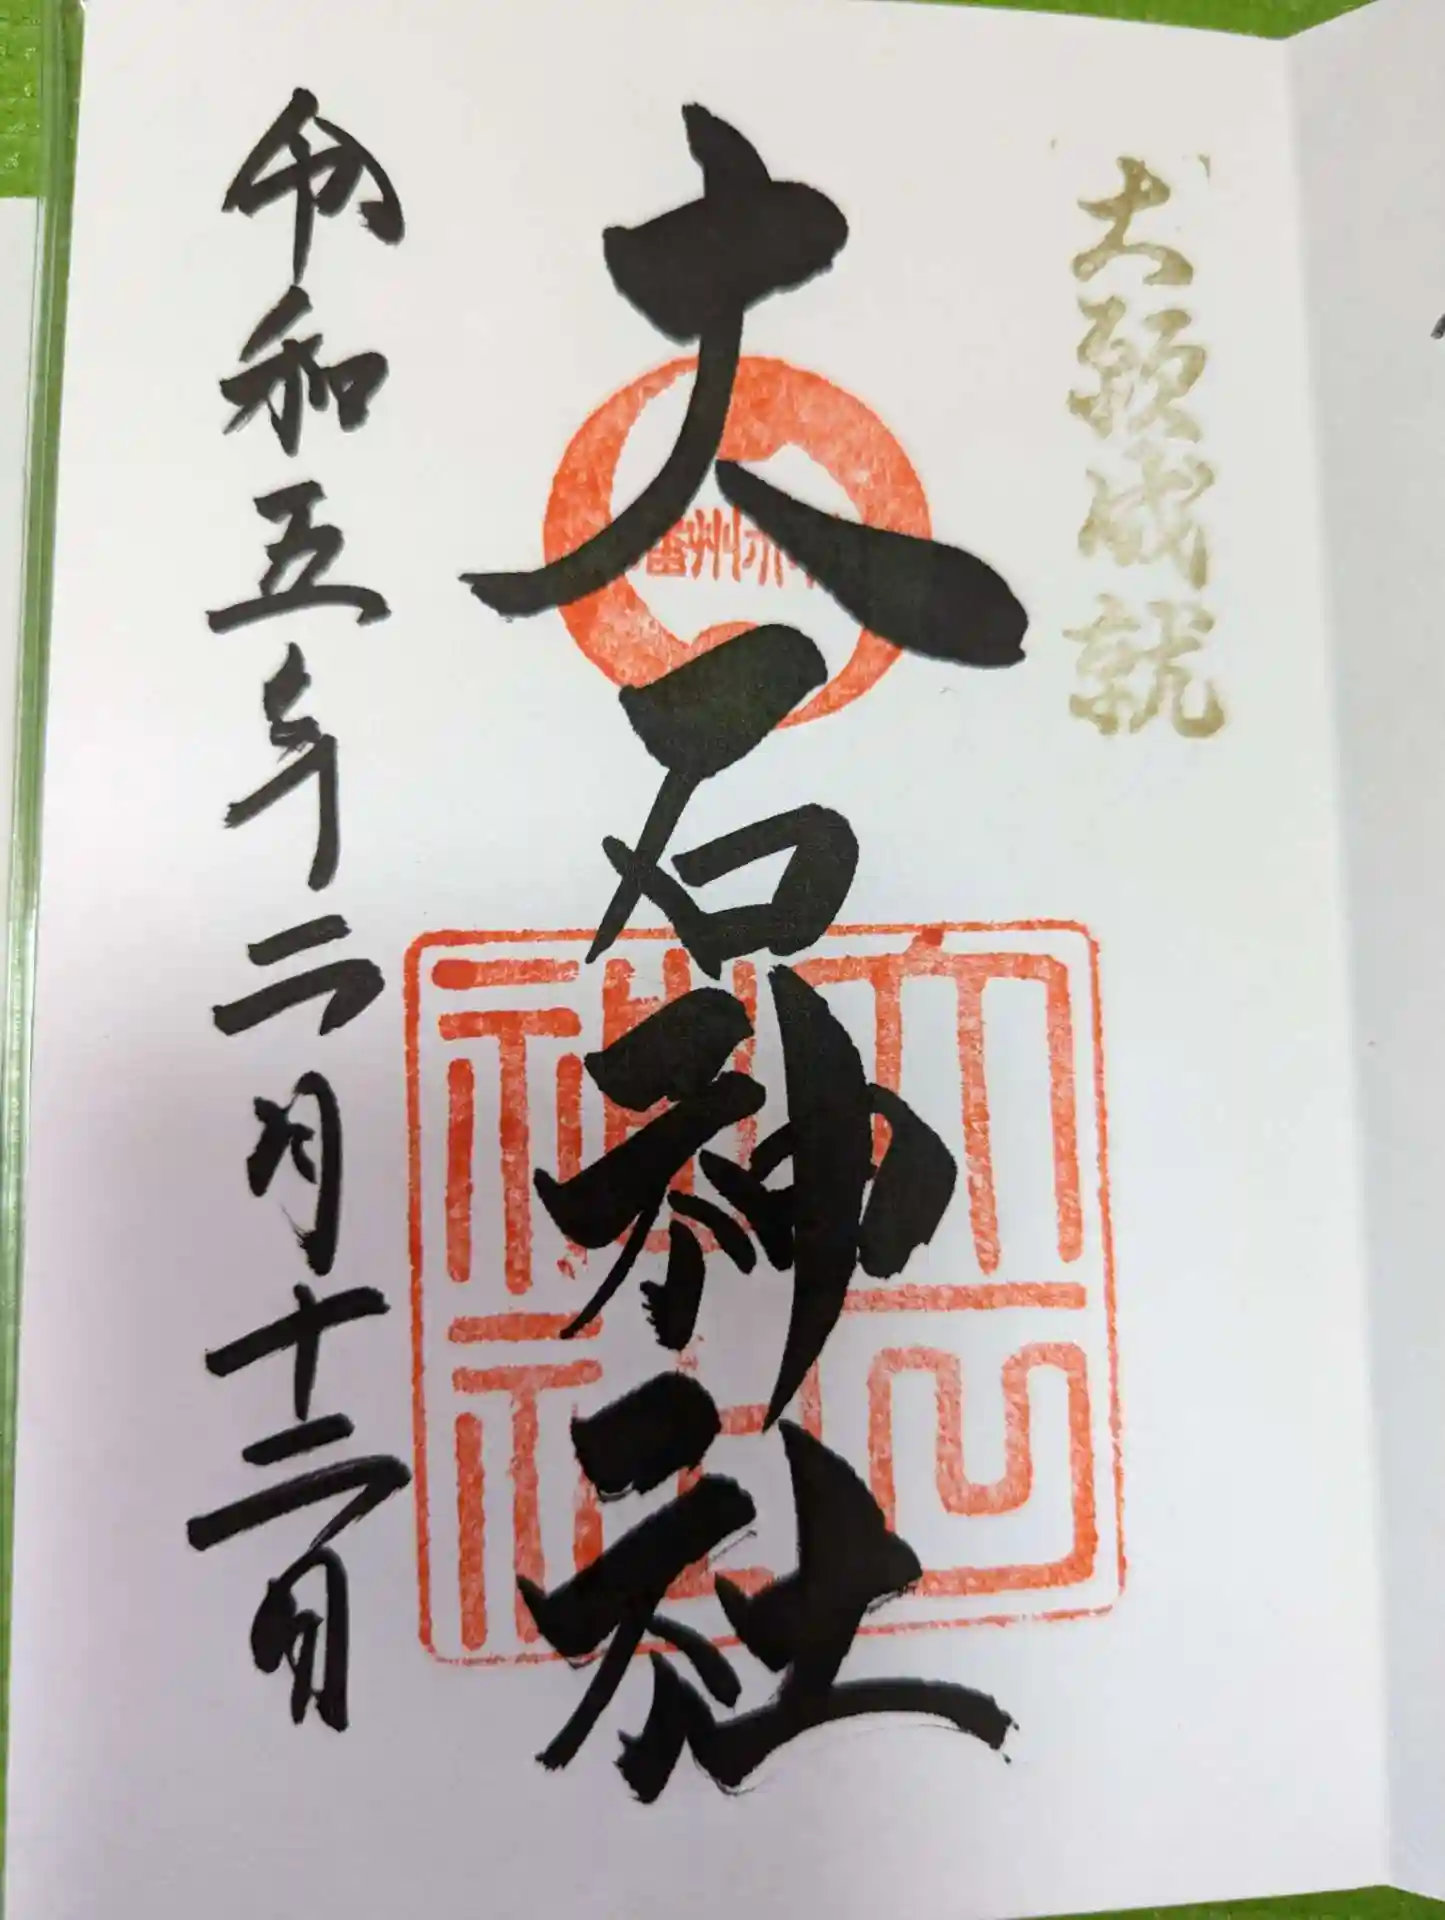 大願成就
大石神社
播州赤穂
大石神社
令和五年二月十二日